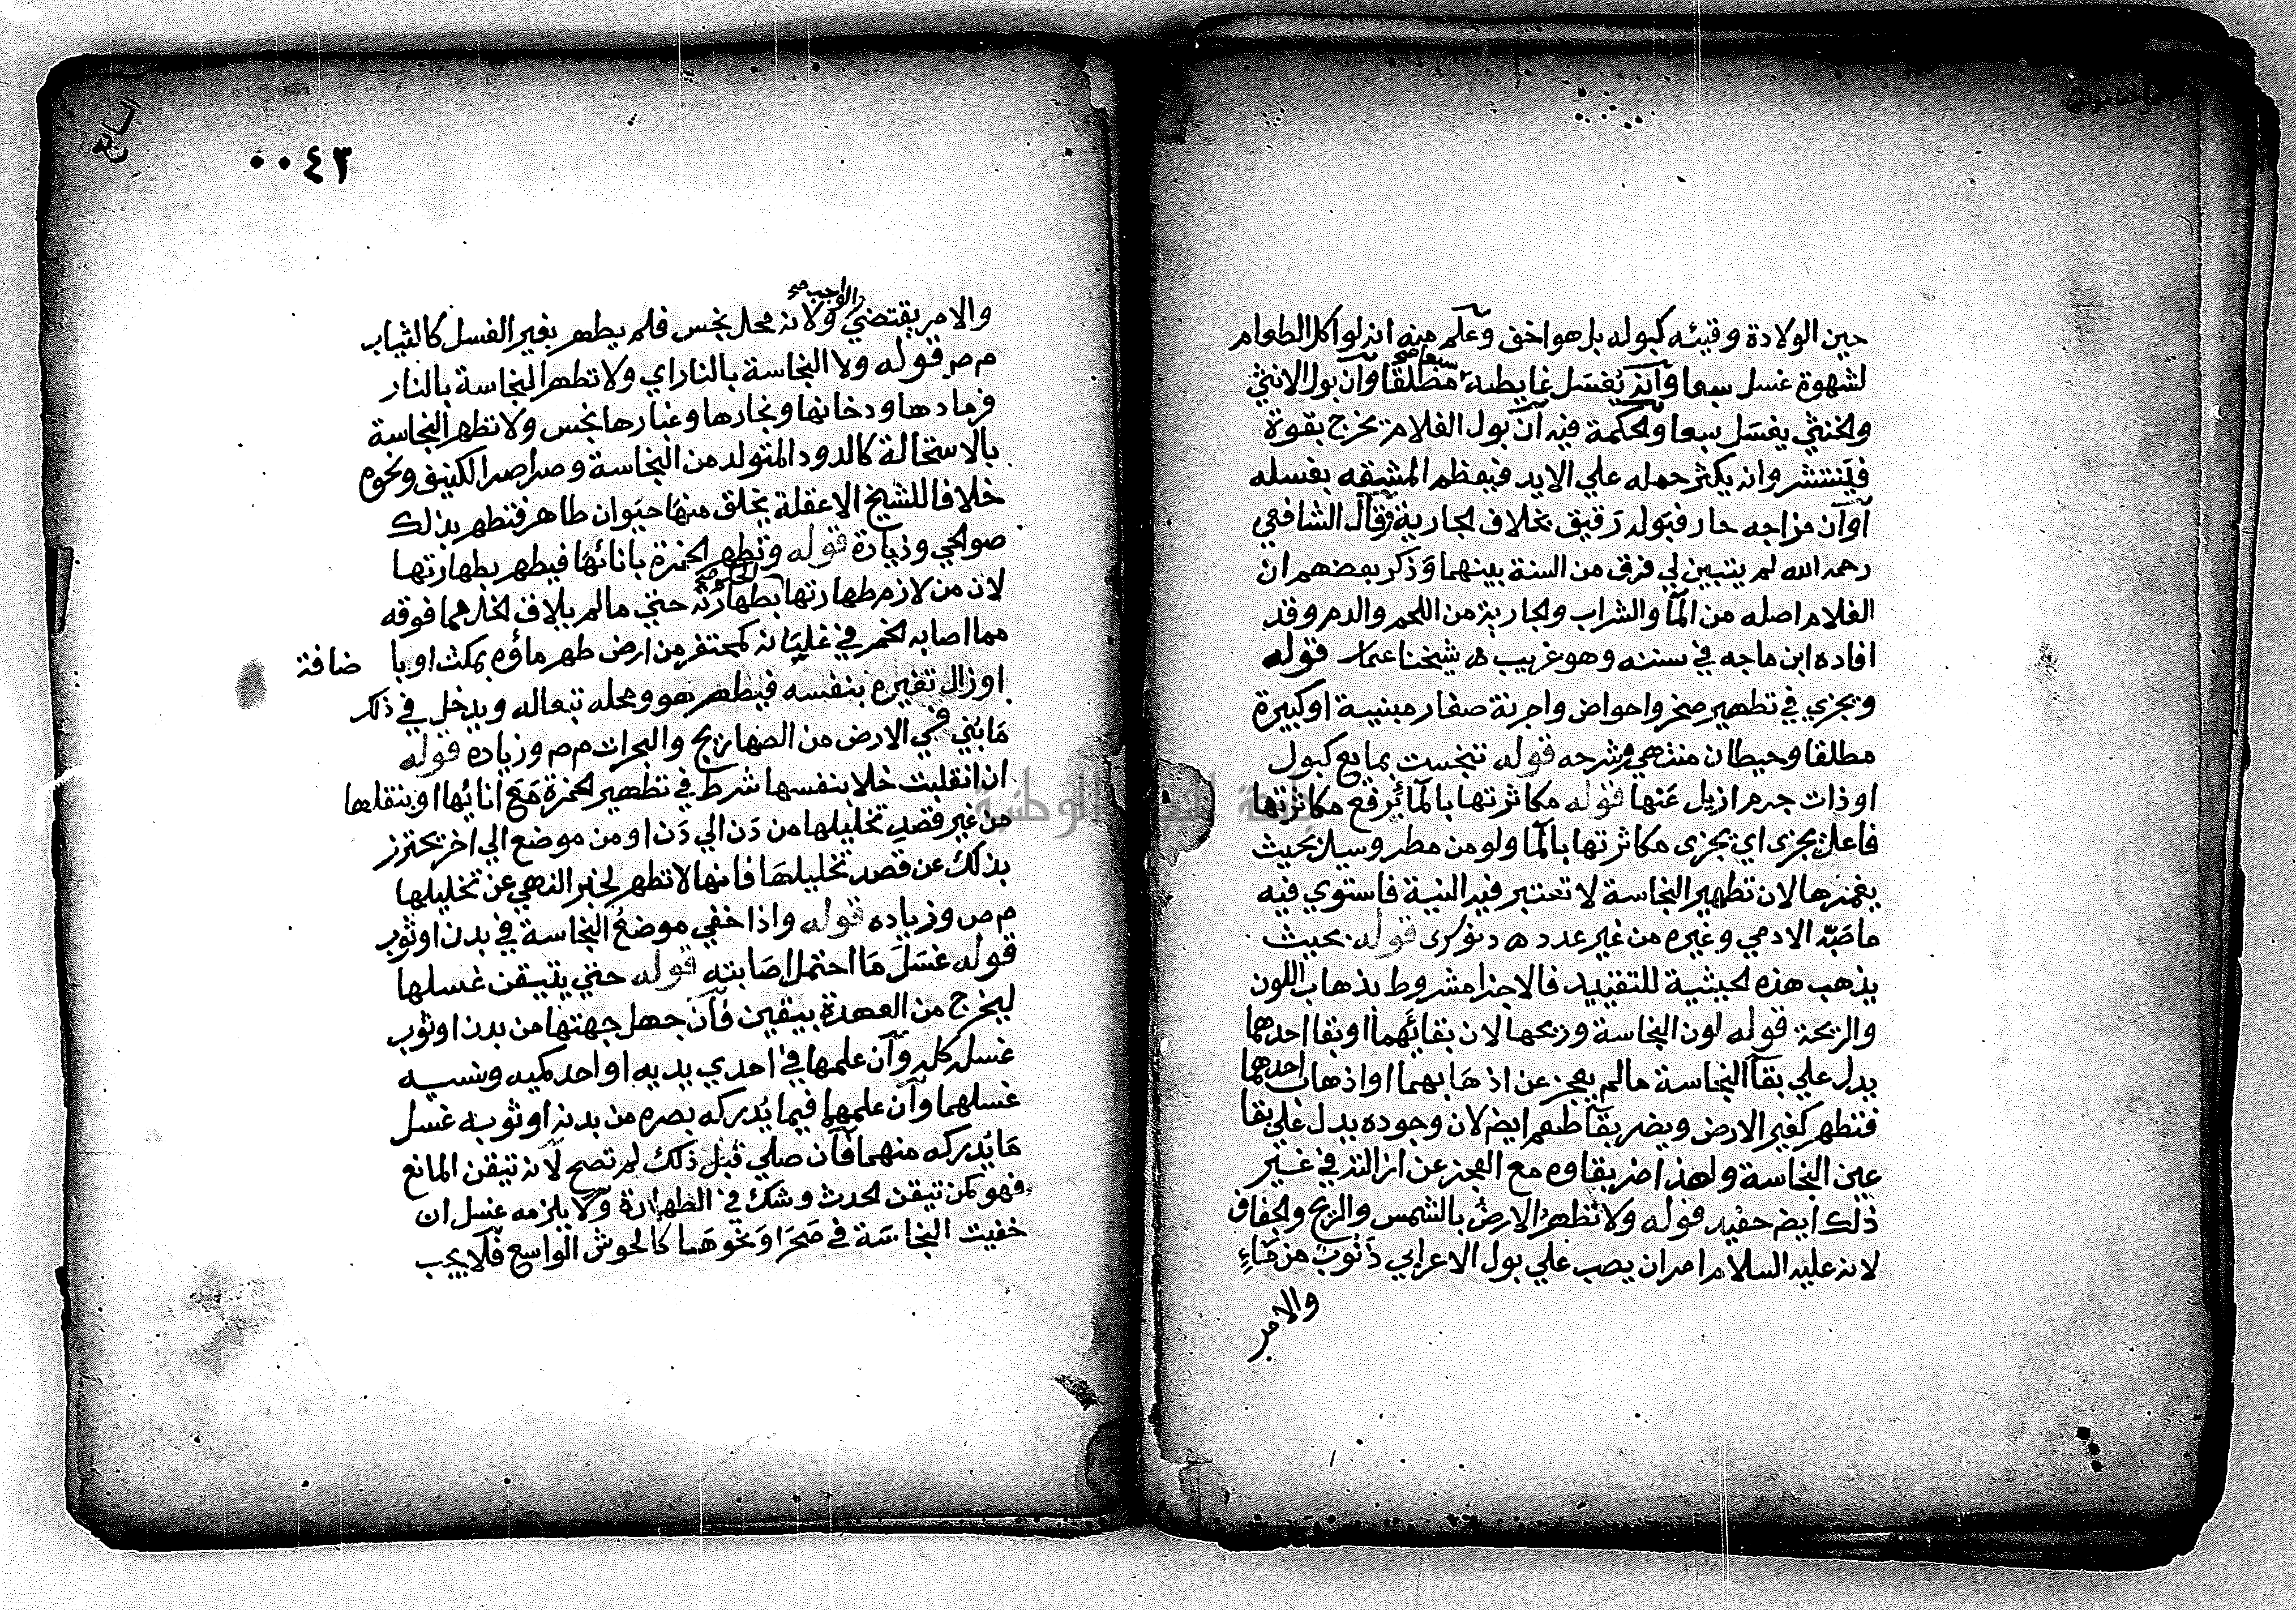 حين الولادة وقيئه كبوله بل هو اخف وعلم منه انه لو اكل الطعام
لشهوة غسل سبعا وانه يغسل غايطه سبعا صح مطلقا وان بول الانثى
والخنثي يغسل سبعا والحكمة فيه ان بول الغلام يخرج بقوة
فينتشر وانه يكثر حمله علي الايد فيعظم المشقه بغسله
او ان مزاجه حار فبوله رقيق بخلاف الجارية وقال الشافعي
رحمه الله لم يتبين لي فرق من السنة بينهما وذكر بعضهم ان
الغلام اصله من الما والشراب والجارية من اللحم والدم وقد
افاده ابن ماجه في سننه وهو غريب ه شيخنا قوله
ويجزي في تطهير صخر واحواض واجرنة صغار مبنية او كبيرة
مطلقا وحيطان منتهي وشرحه قوله تنجست بمايع كبول
او ذات جرم ازيل عنها قوله مكاثرتها بالما برفع مكاثرتها
فاعل يجزى اي يجزى مكاثرتها بالما ولو من مطر وسيل بحيث
يغمرها لان تطهير النجاسة لا تعتبر فيه النية فاستوي فيه
ما صبه الادمي وغيره من غير عدد ه دنوشرى قوله بحيث
يذهب هذه الحيثية للتقييد فالاجزا مشروط بذهاب اللون
والريحة قوله لون النجاسة وريحها لان بقائهما او بقا احدهما
يدل علي بقا النجاسة ما لم يعجز عن اذهابهما او اذهاب احدهما
فتطهر كغير الارض ويضر بقا طعم ايض لان وجوده يدل علي بقا
عين النجاسة ولهذا ضر بقاوه مع العجز عن ازالته في غير
ذلك ايض حفيد قوله ولا تطهر الارض بالشمس والريح والجفاف
لانه عليه السلام امر ان يصب علي بول الاعرابي ذنوب من ماء
والامر
السابع
٠٠٤٣
والامر يقتضي الوجب صح ولانه محل نجس فلم يطهر بغير الغسل كالثياب
م ص قوله ولا النجاسة بالنار اي ولا تطهر النجاسة بالنار
فرمادها ودخانها وبخارها وغبارها نجس ولا تطهر النجاسة
بالاستحالة كالدود المتولد من النجاسة وصراصر الكنيف ونحوه
خلافا للشيخ الا علقة يخلق منها حيوان طاهر فتطهر بذلك
صوالحي وزيادة قوله وتطهر الخمرة بانائها فيطهر بطهارتها
لان من لازم طهارتها بطهارته الحكم صح حتي ما لم يلاق الخل مما فوقه
مما اصابه الخمر في غليانه كمحتفر من ارض طهر ماؤه بمكث او باضافة
او زال تغيره بنفسه فيطهر هو ومحله تبعا له ويدخل في ذلك
ما بني في الارض من الصهاريج والبحرات م ص وزياده قوله
ان انقلبت خلا بنفسها شرط في تطهير الخمرة مع انائها او بنقلها
من غير قصد تخليلها من دن الي دن او من موضع الي اخر يحترز
بذلك عن قصد تخليلها فانها لا تطهر لخبر النهي عن تخليلها
م ص وزياده قوله واذا خفي موضع النجاسة في بدن او ثوب
قوله غسل ما احتمل اصابته قوله حتي يتيقن غسلها
ليخرج من العهدة بيقين فان جهل جهتها من بدن او ثوب
غسل كله وان علمها في احدي يديه او احد كميه ونسيه
غسلهما وان علمها فيما يدركه بصره من بدنه او ثوبه غسل
ما يدركه منهما فان صلي قبل ذلك لم تصح لانه تيقن المانع
فهو كمن تيقن الحدث وشك في الطهارة ولا يلزمه غسل ان
خفيت النجاسة في صحرا ونحوهما كالحوش الواسع فلا يجب